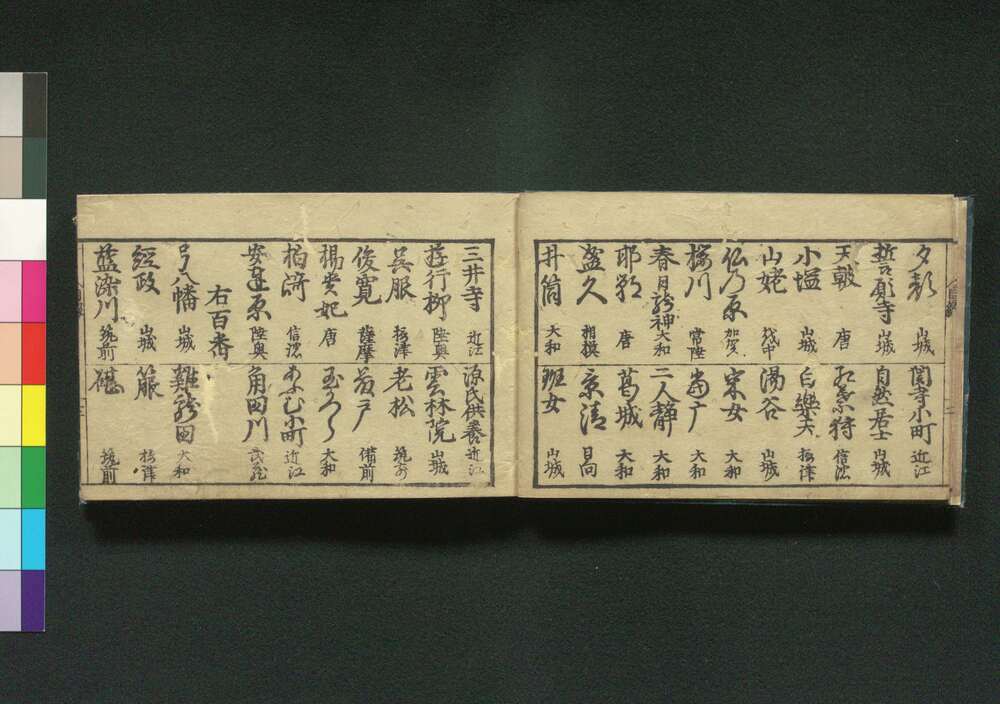 夕顔 山城 関寺小町 近江
誓願寺 山城 自然居士 山城
天皷 唐 紅葉狩 信濃
小塩 山城 白樂天 摂津
山姥 越中 湯谷 山城
仏乃原 加賀 采女 大和
桜川 常陸 當广 大和
春日龍神 大和 二人静 大和
邯鄲 唐 葛城 大和
盛久 相摸 景清 日向
井筒 大和 班女 山城
三井寺 近江 源氏供養 近江
遊行柳 陸奥 雲林院 山城
呉服 摂津 老松 筑前
俊寛 薩摩 藤戸 備前
楊貴妃 唐 玉かつら 大和
栢﨑 信濃 あふむ小町 近江
安達原 陸奥 角田川 武蔵
右百番
弓八幡 山城 龍田 大和
経政 山城 箙 摂津
藍染川 筑前 碪 筑前